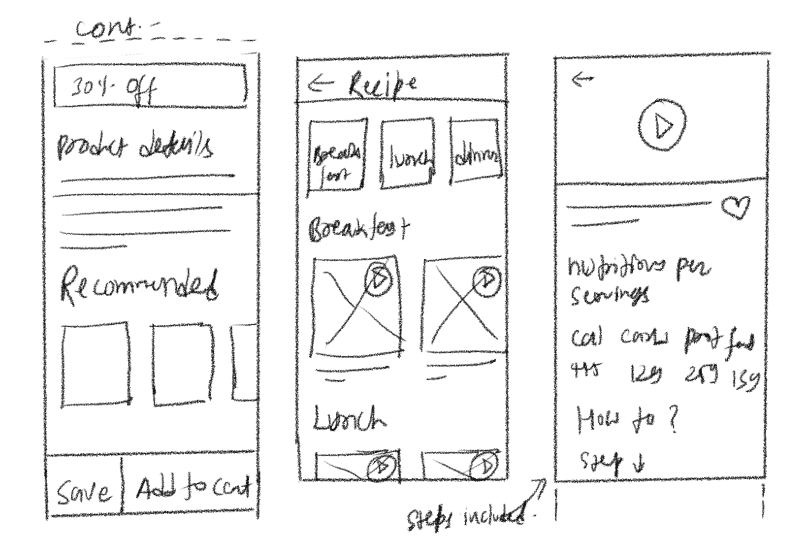 cont.-
30% off
product details
Recommended
Save
Add to cart
← Recipe
Breakfast
lunch
dinner
Breakfast
Lunch
←
nutritions per
servings
cal carbs prot fat
445 12g 25g 15g
How to?
Step ↓
steps included.